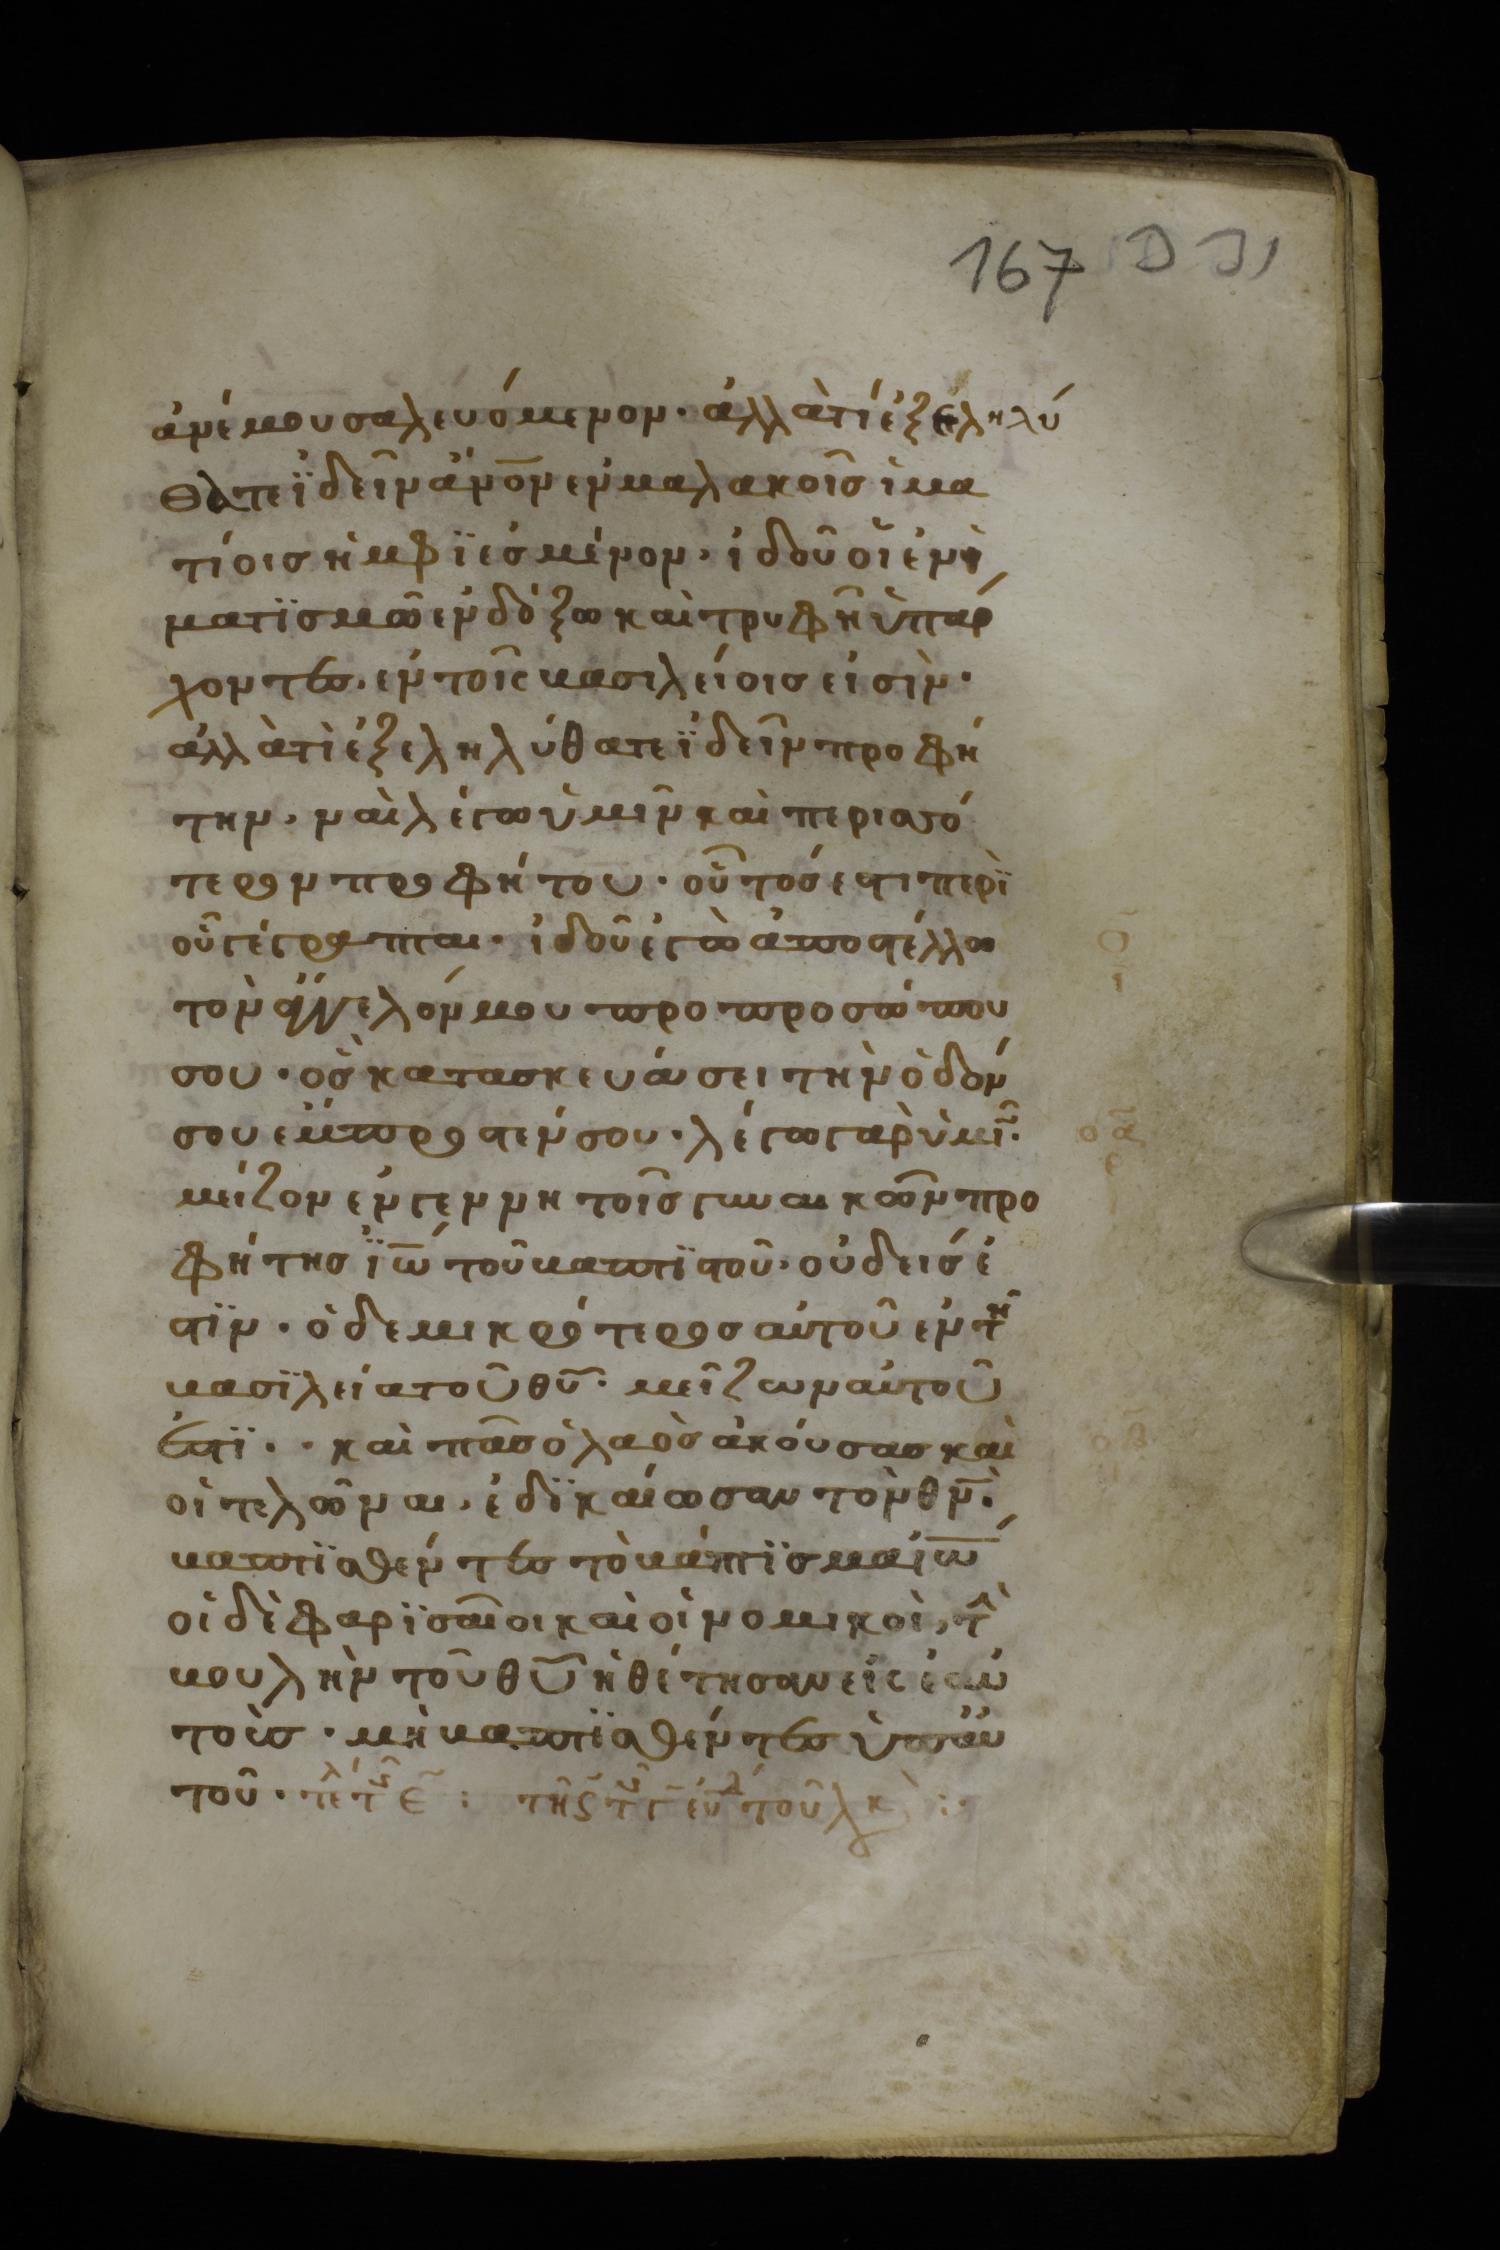 167
ἀνέμου σαλευόμενον· ἀλλὰ τί ἐξεληλύ
θατε ϊδεῖν ἀνο̅ν ἐν μαλακοῖς ἱμα
τίοις ἠμφϊεσμένον, ἰδοῦ οἱ ἐν ἱ
ματϊσμῶ ἐνδόξω καὶ τρυφῆ ὑπάρ
χοντες, ἐν τοῖς βασιλείοις εἰσὶν·
ἀλλὰ τὶ ἐξεληλύθατε ϊδεῖν προφή
την, ναὶ λέγω ὑμῖν καὶ περισσό
τερον προφήτου· οὗτός ἐστι περὶ
οὗ γέγραπται· ἰδοῦ ἐγὼ ἀποστέλλω
τὸν ἄγγελόν μου προ προσώπου
σου· ὃς κατασκευάσει τὴν ὁδόν
σου ἔμπροστεν σου· λέγω γὰρ ὑμῖν·
μείζον ἐν γεννητοῖς γυναικῶν προ
φήτης ϊω̅ τοῦ βαπτϊστοῦ· οὐδεὶς ἐ
στϊν· ὁ δε μικρότερος αὐτοῦ ἐν τῆ
βασϊλεία τοῦ θυ̅· μεῖζων αὐτοῦ
ἐστϊ·· καὶ πᾶς ὁ λαὸς ἀκούσας καὶ
οἱ τελῶναι, ἐδϊκαίωσαν τὸν θν̅·
βαπτϊσθέντες τὸ βάπτϊσμα ἰω̅
οἱ δὲ φαρϊσαῖοι καὶ οἱ νομικοὶ, τὴ
βουλὴν τοῦ θυ̅ ἠθέτησαν εἰς ἑαυ
τοὺς· μὴ βαπτϊσθέντες ὑπ αὐ
τοῦ·